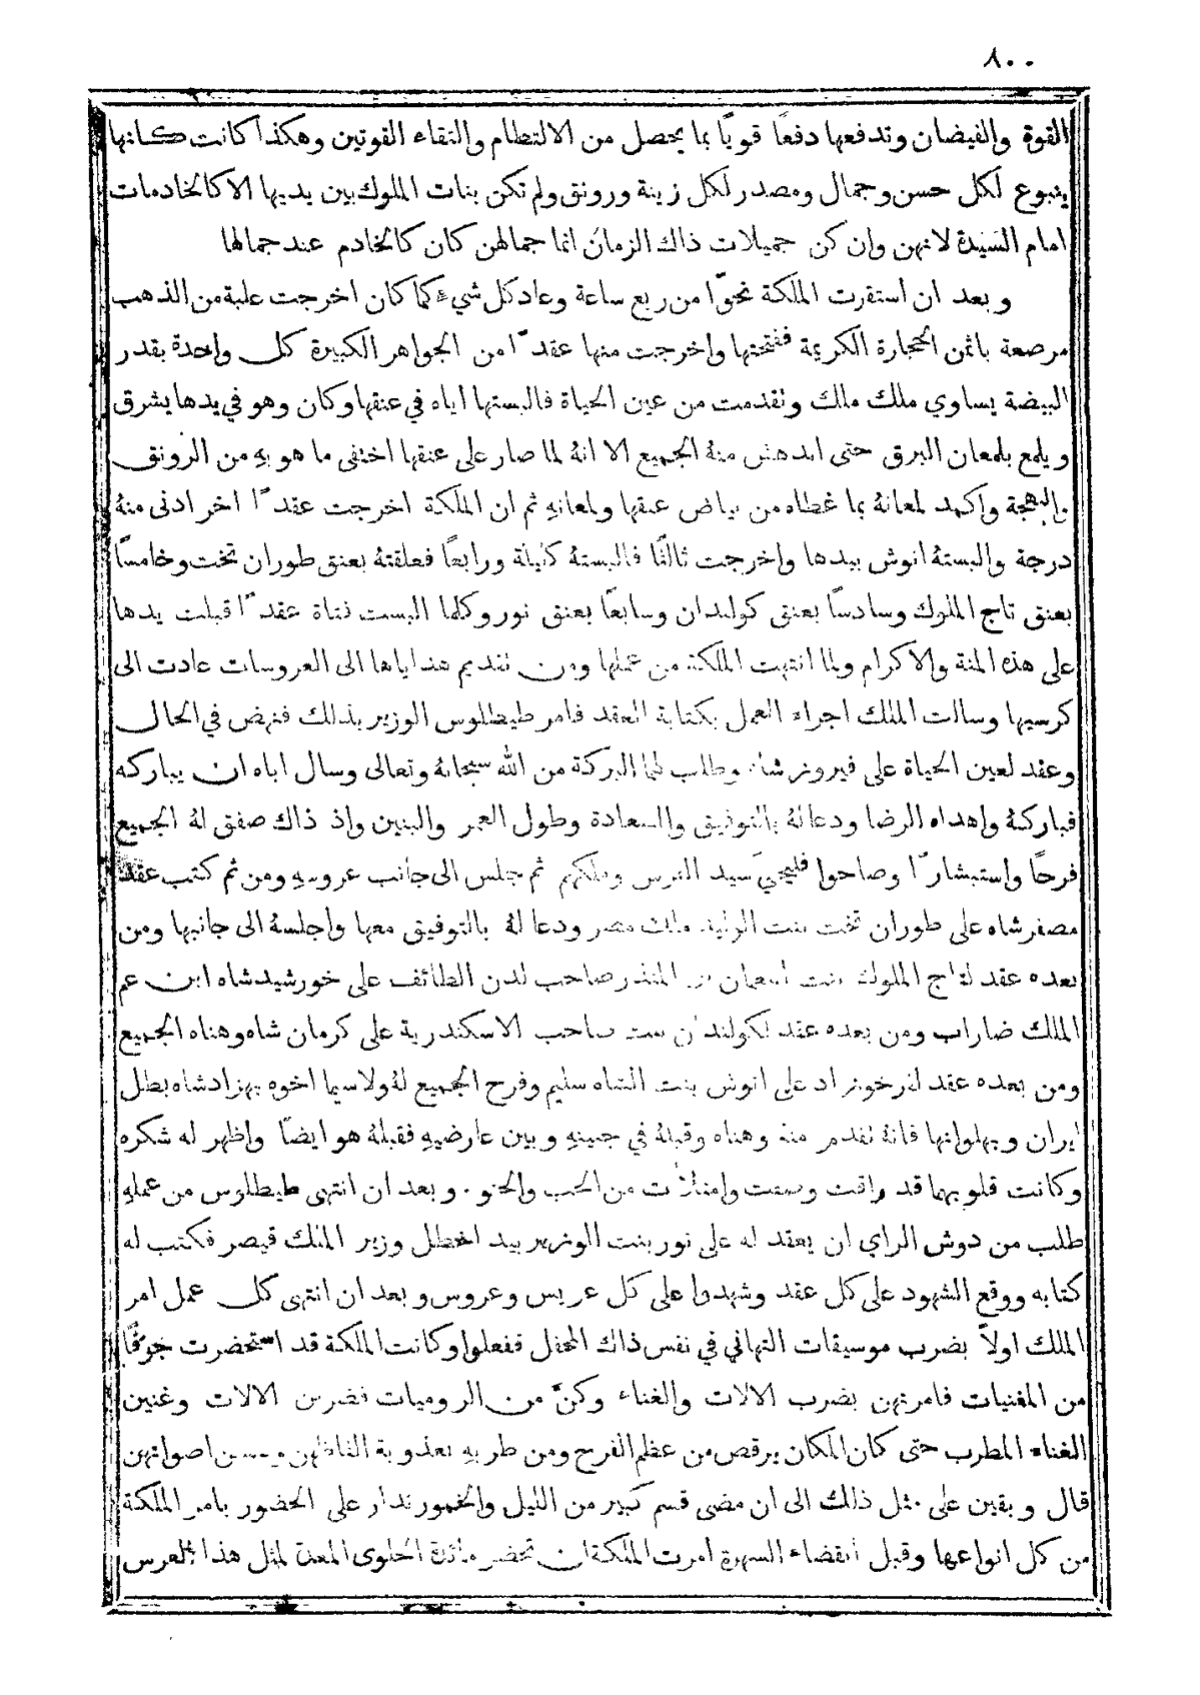 ٨٠٠
القوة والفيضان وتدفعها دفعًا قويًّا بما يحصل من الالتطام والتقاء القوتين وهكذا كانت كانها
ينبوع لكل حسن وجمال ومصدر لكل زينة ورونق ولم تكن بنات الملوك بين يديها الا كالخادمات
امام السيدة لانهن وان كن جميلات ذاك الزمان انما جمالهن كان كالخادم عند جمالها
وبعد ان استقرت الملكة نحوًا من ربع ساعة وعاد كل شيء كما كان اخرجت علبة من الذهب
مرصعة باثمن الحجارة الكريمة ففتحتها واخرجت منها عقدًا من الجواهر الكبيرة كل واحدة بقدر
البيضة يساوي ملك ملك وتقدمت من عين الحياة فالبستها اياه في عنقها وكان وهو في يدها يشرق
ويلمع بلمعان البرق حتى اندهش منهُ الجميع الا انهُ لما صار على عنقها اختفى ما هو بهِ من الرونق
والبهجة واكمد لمعانهُ بما غطاه من بياض عنقها ولمعانهِ ثم ان الملكة اخرجت عقدًا اخر ادنى منهُ
درجة والبستهُ انوش بيدها واخرجت ثالثًا فالبستهُ كليلة ورابعًا فعلقتهُ بعنق طوران تخت وخامسًا
بعنق تاج الملوك وسادسًا بعنق كولندان وسابعًا بعنق نور وكلما البست فتاة عقدًا قبلت يدها
على هذه المنة والاكرام ولما انتهت الملكة من عملها ومن تقديم هداياها الى العروسات عادت الى
كرسيها وسالت الملك اجراء العمل بكتابة العقد فامر طيطلوس الوزير بذلك فنهض في الحال
وعقد لعين الحياة على فيروز شاه وطلب لهما البركة من الله سبحانهُ وتعالى وسال اباه ان يباركه
فباركهُ واهداه الرضا ودعا لهُ بالتوفيق والسعادة وطول العمر والبنين واذ ذاك صفق لهُ الجميع
فرحًا واستبشارًا وصاحوا فليحيَ سيد الفرس وملكهم ثم جلس الى جانب عروسهِ ومن ثم كتب عقد
مصفر شاه على طوران تخت بنت الوليد ملك مصر ودعا لهُ بالتوفيق معها واجلسهُ الى جانبها ومن
بعده عقد لتاج الملوك بنت النعمان بن المنذر صاحب لدن الطائف على خورشيد شاه ابن عم
الملك ضاراب ومن بعده عقد لكولندان بنت صاحب الاسكندرية على كرمان شاه وهناه الجميع
ومن بعده عقد لفرخوزاد على انوش بنت الشاه سليم وفرح الجميع لهُ ولا سيما اخوه بهزاد شاه بطل
ايران وبهلوانها فانهُ تقدم منهُ وهناه وقبلهُ في جبينهِ وبين عارضيهِ فقبلهُ هو ايضًا واظهر له شكره
وكانت قلوبهما قد راقت وصفت وامتلأت من الحب والحنو. وبعد ان انتهى طيطلوس من عملهِ
طلب من دوش الراي ان يعقد له على نور بنت الوزير بيد اخطل وزير الملك قيصر فكتب له
كتابه ووقع الشهود على كل عقد وشهدوا على كل عريس وعروس وبعد ان انتهى كل عمل امر
الملك اولاً بضرب موسيقات التهاني في نفس ذاك المحفل ففعلوا وكانت الملكة قد استحضرت جوقًا
من المغنيات فامرتهن بضرب الالات والغناء وكنَّ من الروميات فضربن الالات وغنين
الغناء المطرب حتى كان المكان يرقص من عظم الفرح ومن طربهِ بعذوبة الفاظهن وحسن اصواتهن
قال وبقين على مثل ذلك الى ان مضى قسم كبير من الليل والخمور تدار على الحضور بامر الملكة
من كل انواعها وقبل انقضاء السهرة امرت الملكة ان تحضر مائدة الحلوى المعدة لمثل هذا العرس